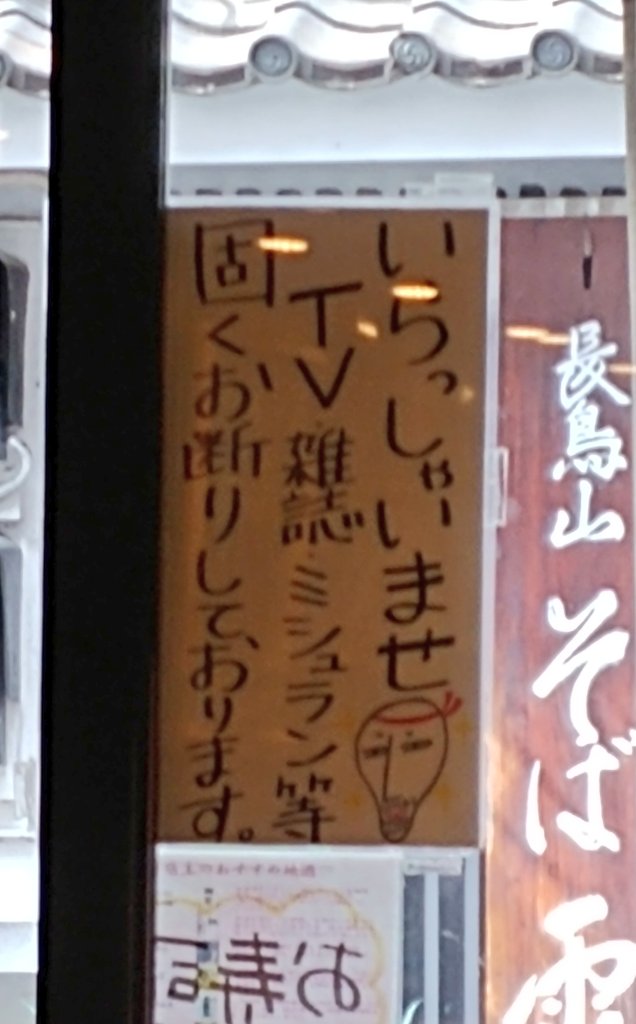 いらっしゃいませ
TV雑誌・ミシュラン等
固くお断りしております。
長鳥山 そば 雲
店主のおすすめ地酒
お寿司